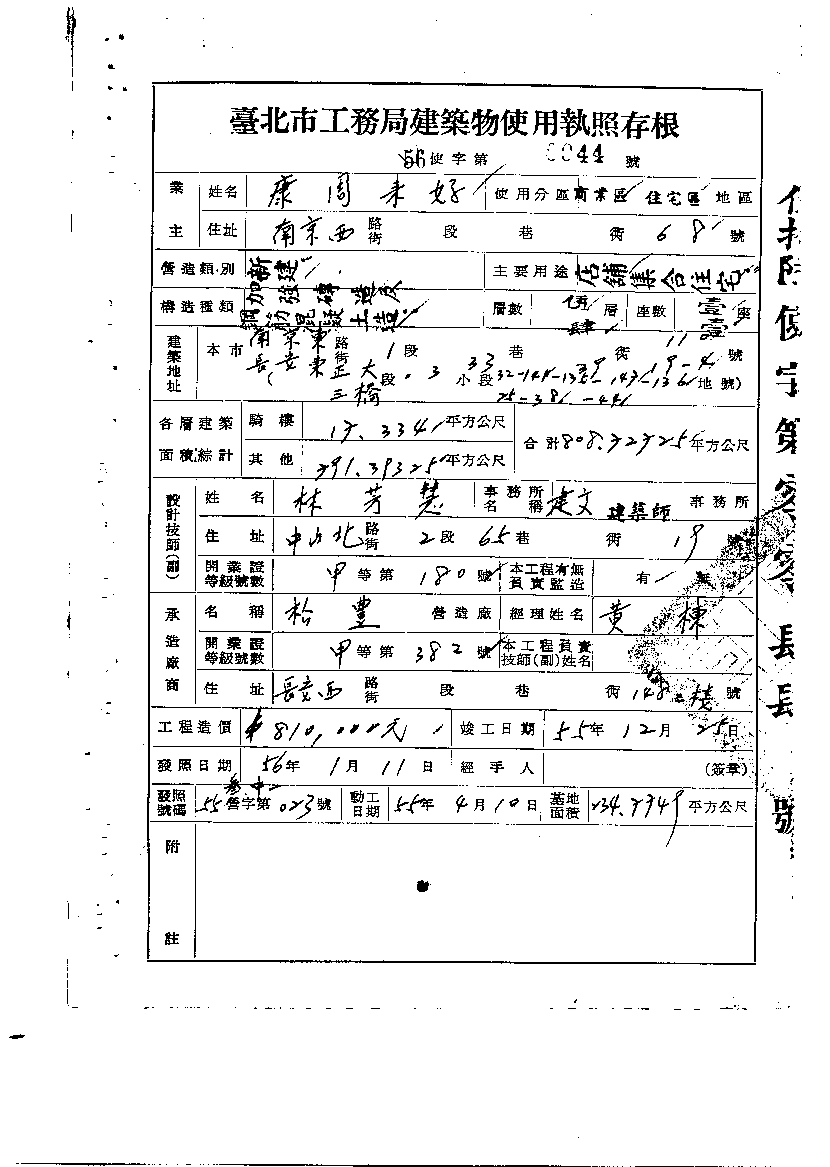 臺北市工務局建築物使用執照存根
56使字第 0044 號
業主 姓名 康周未好 使用分區 商業區 住宅區 地區
住址 南京西 路街 段 巷 衖 68 號
營造類別 新建 主要用途 店舖集合住宅
構造種類 加強磚造及鋼筋混凝土造 層數 伍層 肆 座數 壹座 壹
建築地址 本市 南京東 路街 1段 33 巷 衖 11 號
(長安東 正大 段 3 小段 地號)
三橋
各層建築面積綜計 騎樓 17.3341 平方公尺 合計 平方公尺
其他 平方公尺
設計技師(副) 姓名 林芳慧 事務所名稱 建文 建築師 事務所
住址 中山北 路街 2段 65巷 衖 19 號
開業證等級號數 甲等第 180 號 本工程有無負責監造 有 無
承造廠商 名稱 松豐 營造廠 經理姓名 黃棟
開業證等級號數 甲等第 382 號 本工程負責技師(副)姓名
住址 長安西 路街 段 巷 衖 148 號
工程造價 $810,000元 竣工日期 55年12月25日
發照日期 56年1月11日 經手人 (簽章)
發照號碼 55營字第023號 動工日期 55年4月10日 基地面積 平方公尺
附註
使字第零零長長號